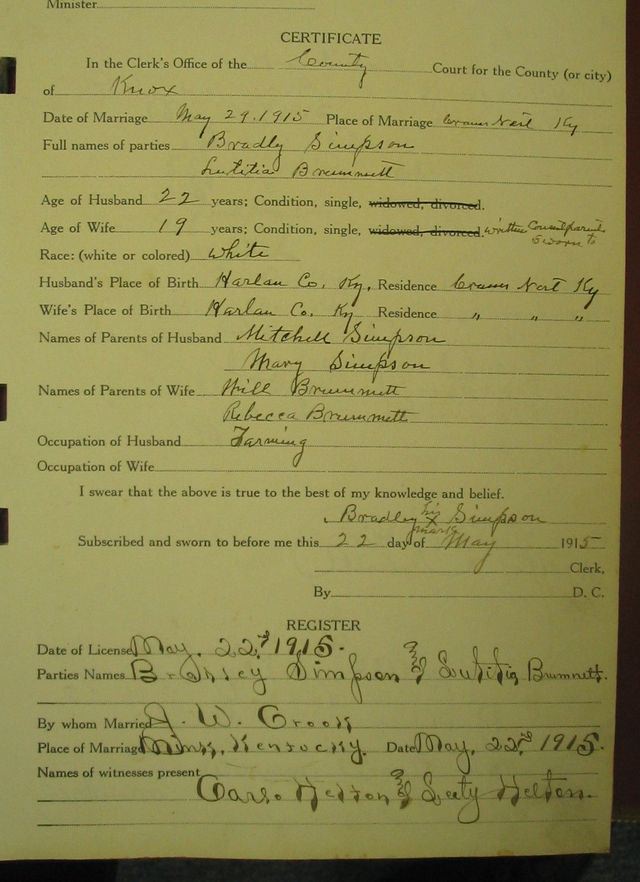 Minister
CERTIFICATE
In the Clerk's Office of the County Court for the County (or city)
of Knox
Date of Marriage May 29, 1915 Place of Marriage Crans Nest Ky
Full names of parties Bradly Simpson
Lutitia Brummett
Age of Husband 22 years; Condition, single, widowed, divorced.
Age of Wife 19 years; Condition, single, widowed, divorced. written Consent parents
sworn to
Race: (white or colored) white
Husband's Place of Birth Harlan Co. Ky. Residence Crans Nest Ky
Wife's Place of Birth Harlan Co. Ky Residence " " "
Names of Parents of Husband Mitchell Simpson
Mary Simpson
Names of Parents of Wife Will Brummett
Rebecca Brummett
Occupation of Husband Farming
Occupation of Wife
I swear that the above is true to the best of my knowledge and belief.
Bradley his x mark Simpson
Subscribed and sworn to before me this 22 day of May 1915
Clerk,
By D. C.
REGISTER
Date of License May, 22, 1915.
Parties Names Simpson & Lutitia Brumnett.
By whom Married J. W. Crook
Place of Marriage Kentucky. Date May, 22nd 1915.
Names of witnesses present
Helton & Helton.